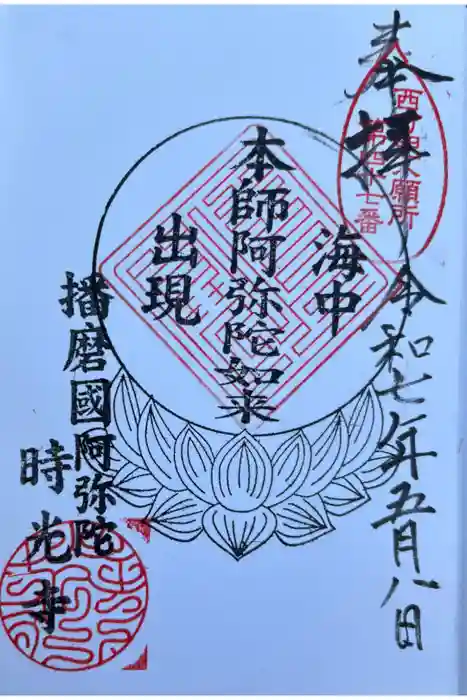 奉拝
西方四十八願所
第四十七番
令和七年五月八日
海中
本師阿弥陀如来
出現
播磨國阿弥陀
時光寺